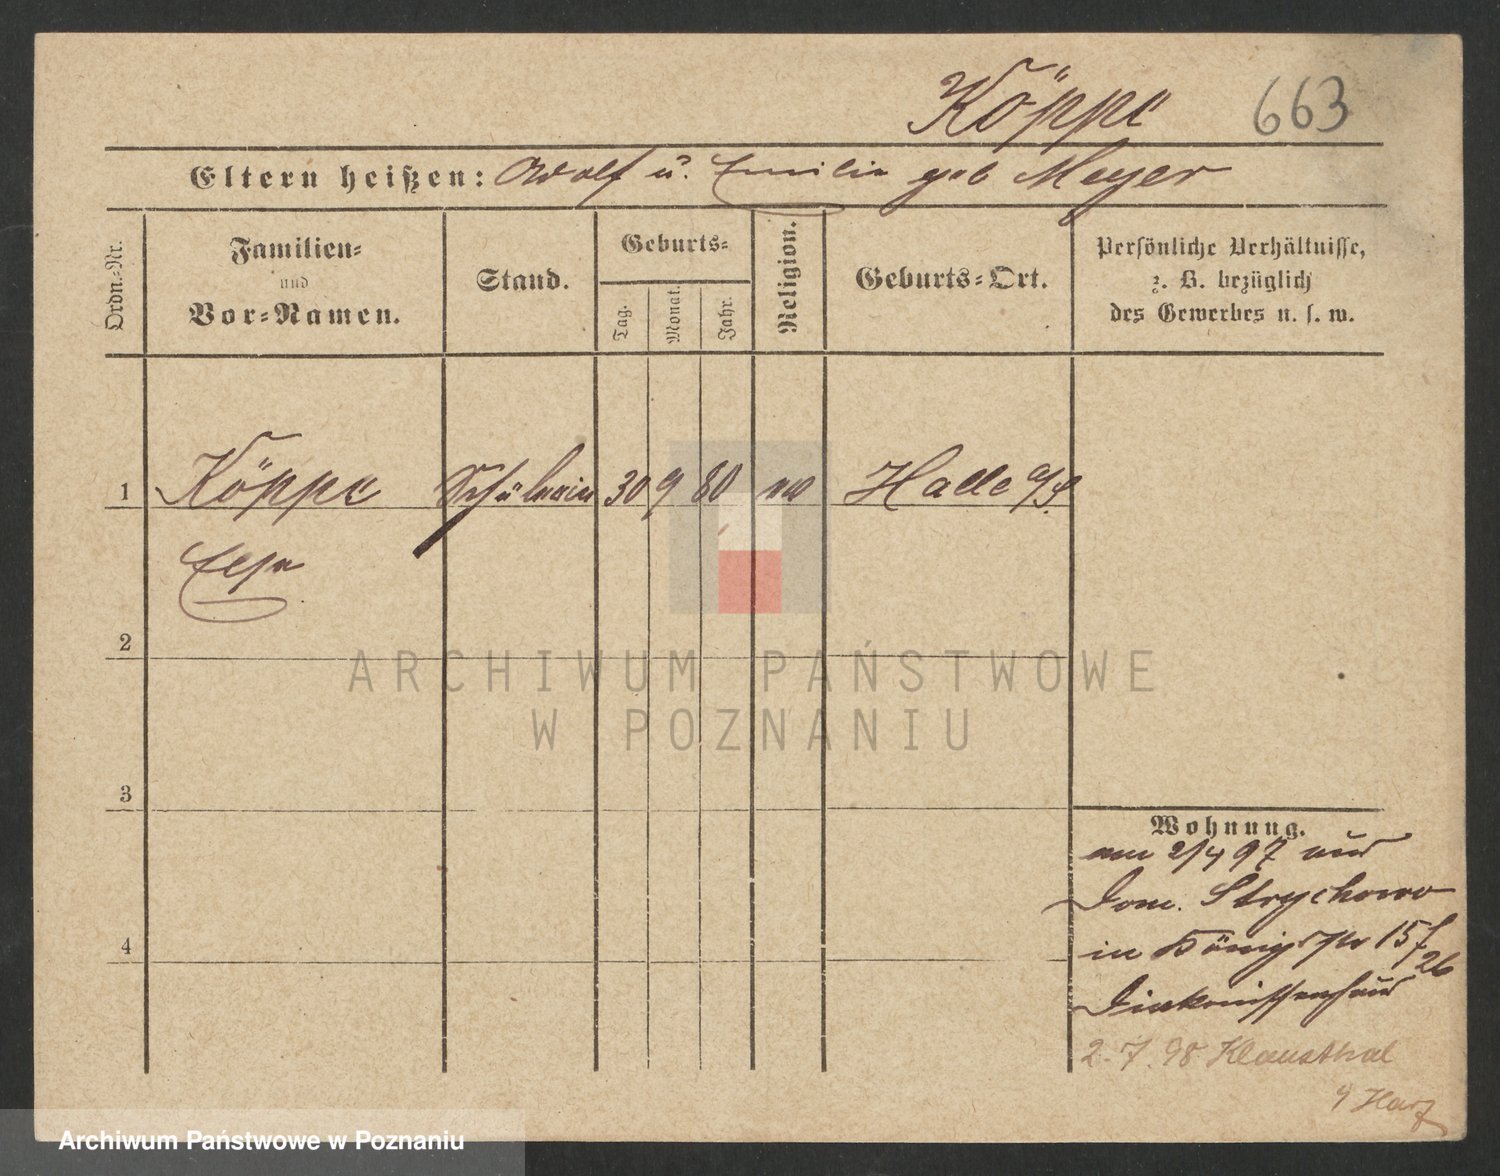 Köppe 663
Eltern heißen: Adolf u. Emilie geb Meyer
Ordn.-Nr.
Familien-
und
Vor-Namen.
Stand.
Geburts-
Tag.
Monat.
Jahr.
Religion.
Geburts-Ort.
Persönliche Verhältnisse,
z. B. bezüglich
des Gewerbes u. s. w.
1 Köppe Schülerin 30 9 80 ev Halle a/S.
Else
2
ARCHIWUM PAŃSTWOWE
W POZNANIU
3
Wohnung.
am 2/4 97 aus
Dom. Strychowo
in Königstr 15/26
4
Diakonissenhaus
2.7.98 Klausthal
Harz
Archiwum Państwowe w Poznaniu